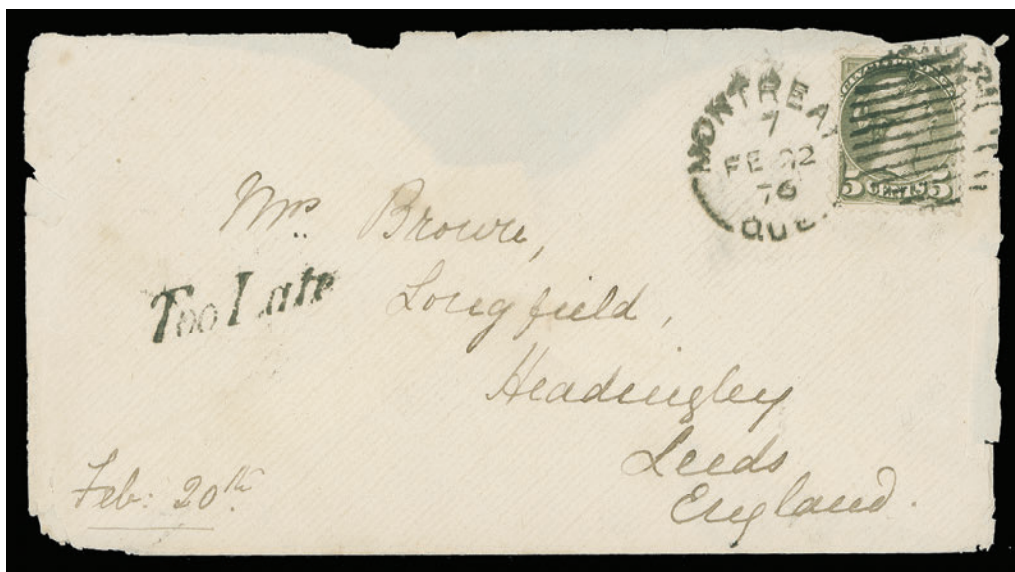 MONTREAL
7
FE 22
76
QUE
5 CENTS 5
Mrs. Brown,
Too Late
Longfield,
Headingley
Leeds
England.
Feb: 20th